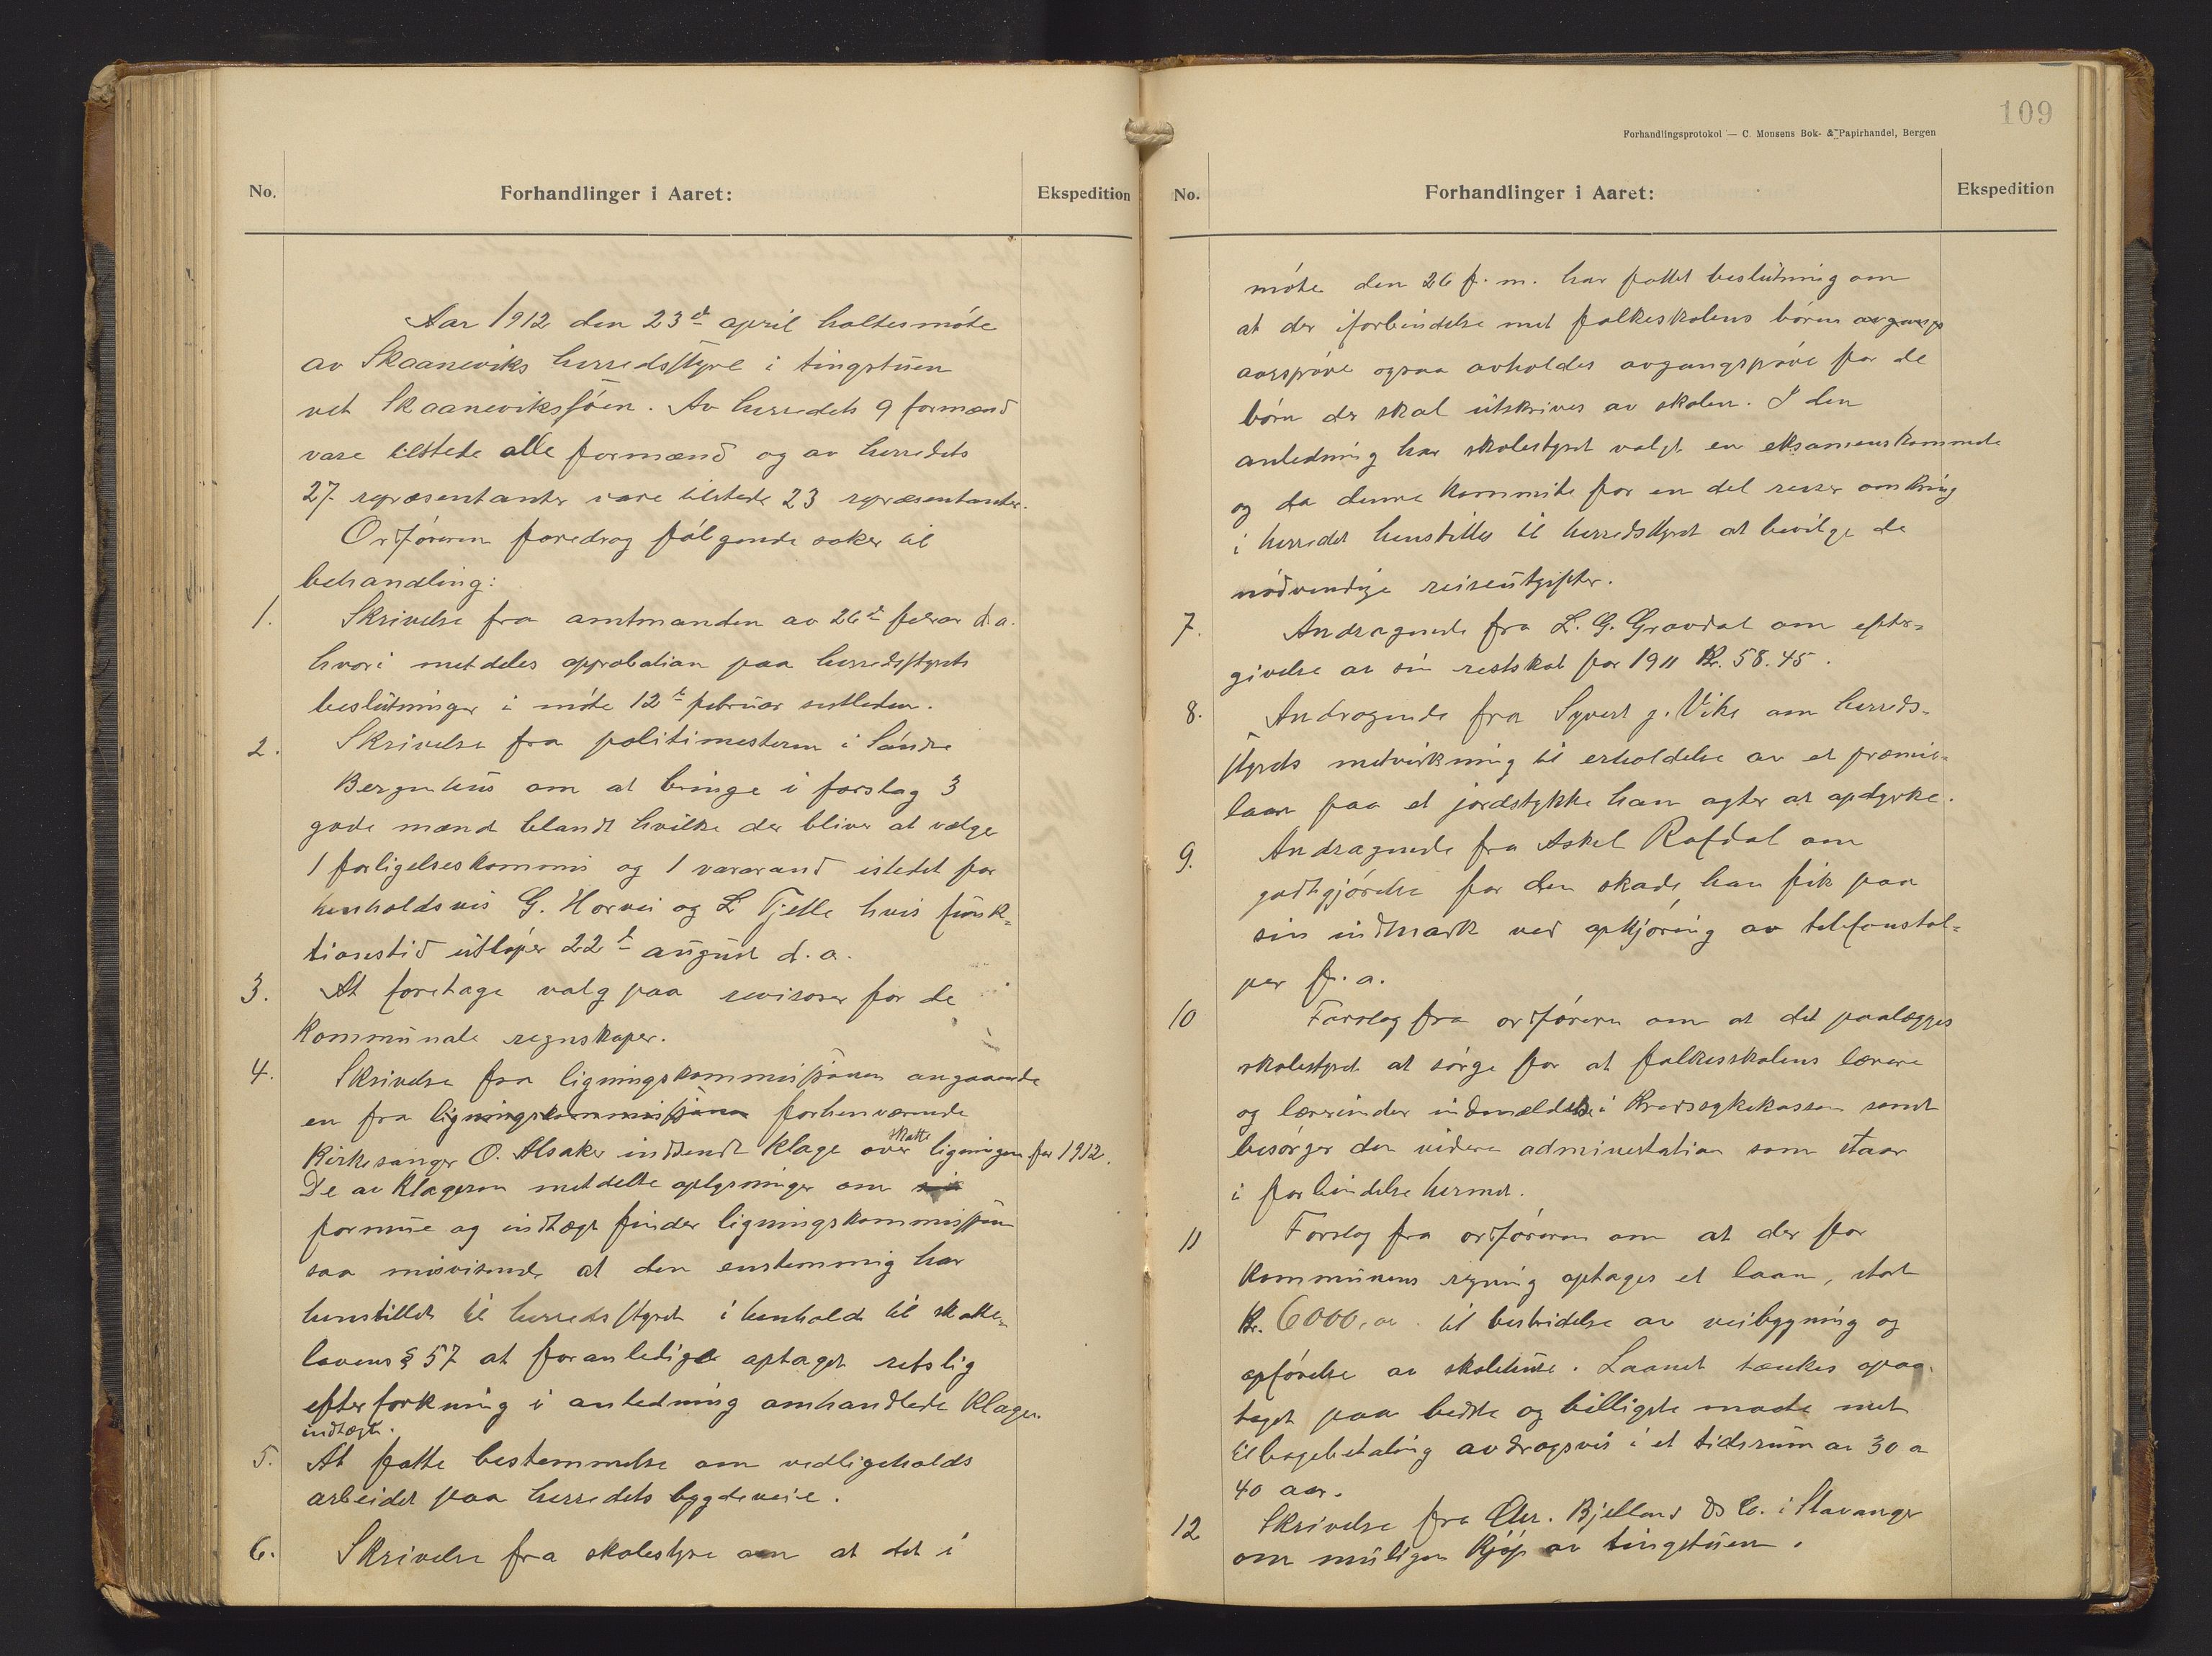 No. Forhandlinger i Aaret: Ekspedition
Aar 1912 den 23d april holtes møte
av Skaaneviks herredsstyre i tingstuen
vet Skaaneviksjøen. Av herredets 9 formænd
vare tilstede alle formænd og av herredets
27 repræsentanter vare tilstede 23 repræsentanter.
Ordføreren foredrog følgende saker til
behandling:
1. Skrivelse fra amtmanden av 26d febrar d.a.
hvori metdeles approbation paa herredsstyrets
beslutninger i møte 12t februar sistleden.
2. Skrivelse fra politimesteren i Søndre
Bergenhus om at bringe i forslag 3
gode mænd blandt hvilke der bliver at vælge
1 forligelseskommis og 1 vararand istedet for
henholdsvis G. Horvei og L Tjelle hvis funk-
tionstid utløper 22t august d.a.
3. At foretage valg paa revisorer for de
kommunale regnskaper.
4. Skrivelse fra ligningskommissjonen angaaende
en fra ligningskommissjonen forhenværende
kirkesanger O. Alsaker inddendt klage over skatteligningen for 1912.
De av klageren metdelte oplysninger om
formue og indtægt finder ligningskommissjon
saa misvisende at den enstemmig har
henstillet til herredsstyret i henhold til skatte-
lovens § 57 at foranledige optaget retslig
efterforkning i anledning omhandlede klagers
indtægt.
5. At fatte bestemmelse om vedligeholds
arbeidet paa herredets bygdeveie.
6. Skrivelse fra skolestyre om at det i
109
Forhandlingsprotokol — C. Monsens Bok- & Papirhandel, Bergen
No. Forhandlinger i Aaret: Ekspedition
møte den 26 f.m. har fattet beslutning om
at der iforbindelse met folkeskolens børns avgangs
aarsprøve ogsaa avholdes avgangsprøve for de
børn der skal utskrives av skolen. I den
anledning har skolestyret valgt en eksamenskommite
og da denne kommite for en del reiser omkring
i herredet henstilles til herredsstyret at bevilge de
nødvendige reiseutgifter.
7. Andragende fra L. G. Gravdal om efter-
givelse av sin restskat for 1911 Kr. 58.45.
8. Andragende fra Syvert J. Vike om herreds-
styrets metvirkning til erholdelse av et præmie-
laan paa et jordstykke han agter at opdyrke.
9. Andragende fra Askel Rafdal om
godtgjørelse for den skade han fik paa
sin indmark ved opkjøring av telefonstol-
per f.a.
10 Forslag fra ordføreren om at det paalægges
skolestyret at sørge for at folkesskolens lærere
og lærerinder indmeldes i kredssykekassen samt
besørger den videre adminestation som staar
i forbindelse hermet.
11 Forslag fra ordføreren om at der for
kommunens regning optages et laan, stort
Kr. 6000,00 til bestridelse av veibygning og
opførelse av skolehuse. Laanet tænkes opaa-
taget paa bedste og billigste maate met
tilbagebetaling avdragsvis i et tidsrum av 30 a
40 aar.
12 Skrivelse fra Chr. Bjelland & Co. i Stavanger
om muligen kjøp av tingstuen.